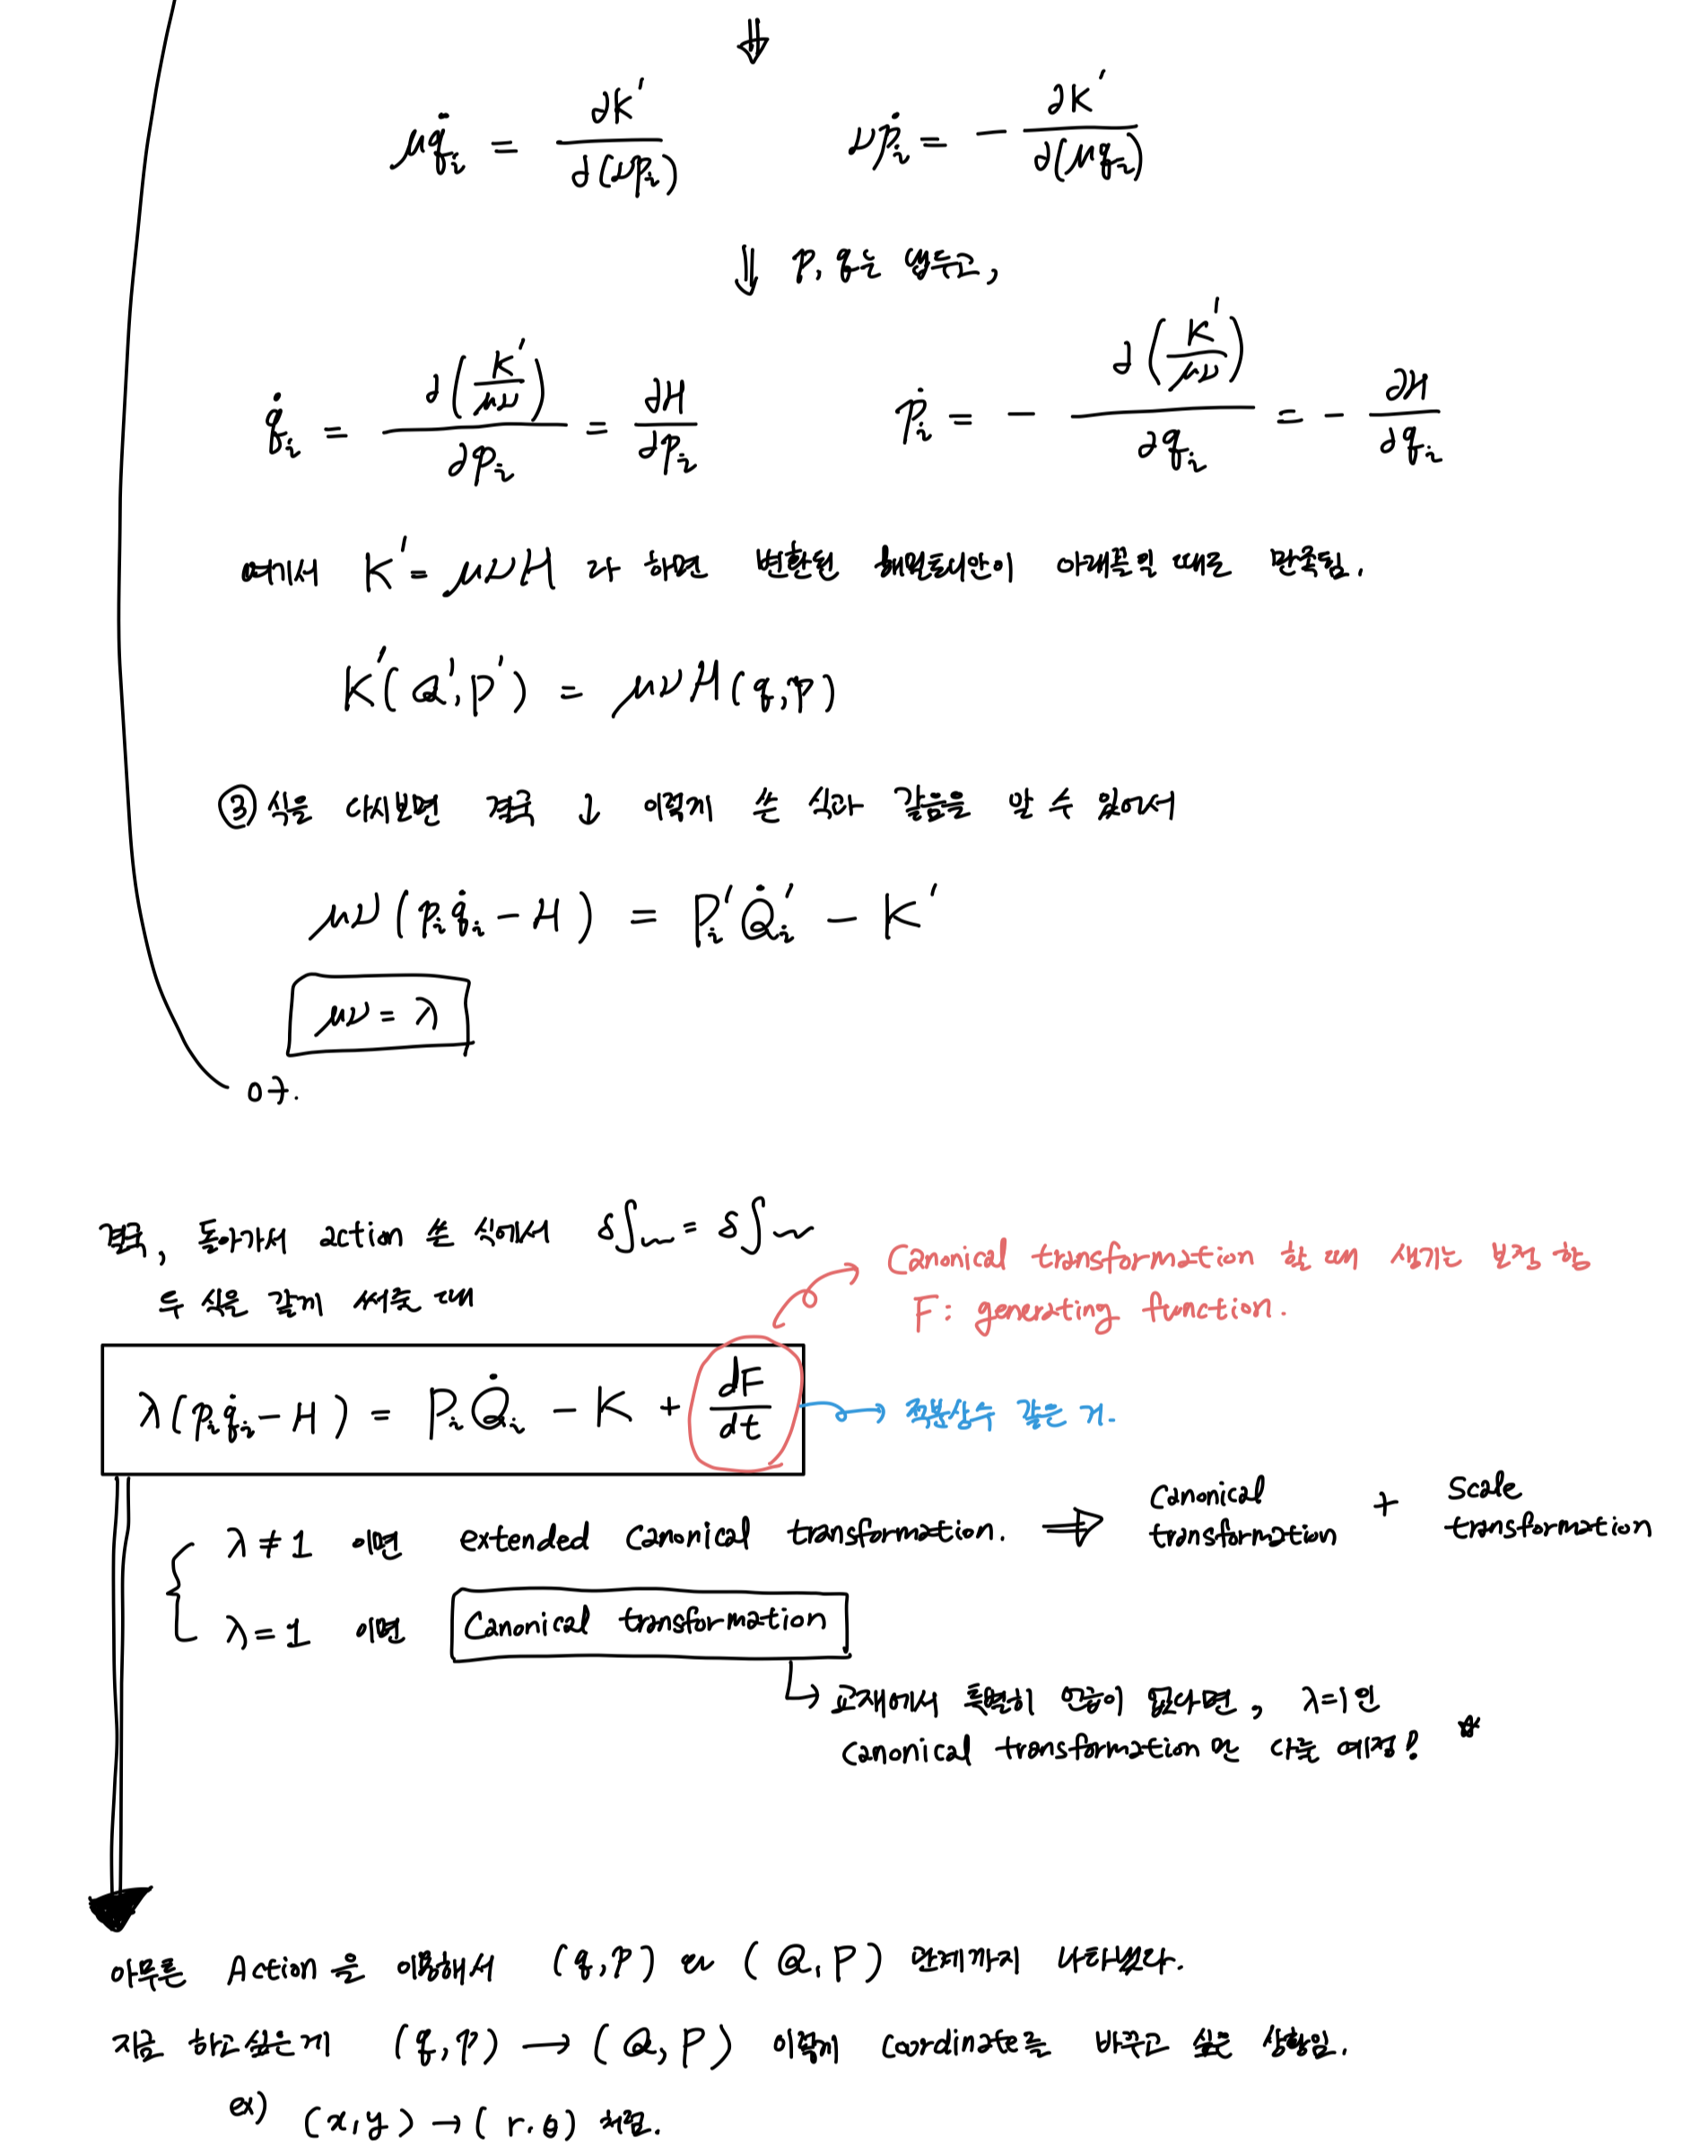 ⇓
μq̇ᵢ = ∂K′/∂(νpᵢ)    νṗᵢ = − ∂K′/∂(μqᵢ)
⇓ p, q는 냅두고,
q̇ᵢ = ∂(K′/μν)/∂pᵢ = ∂H/∂pᵢ    ṗᵢ = − ∂(K′/μν)/∂qᵢ = − ∂H/∂qᵢ
여기서 K′ = μνH 라 하면 변환된 해밀토니안이 아래꼴일 때로 만족됨.
K′(Q′, P′) = μνH(q, p)
③ 식을 다시보면 결국 ↓ 이렇게 쓴 식과 같음을 알 수 있어서
μν(pᵢq̇ᵢ − H) = Pᵢ′Q̇ᵢ′ − K′
μν = λ
야.
결국, 돌아가서 action 쓴 식에서 δ∫~ = δ∫~
두 식을 같게 써줄 때
Canonical transformation 할 때 생기는 보정 항
F: generating function.
λ(pᵢq̇ᵢ − H) = PᵢQ̇ᵢ − K + dF/dt → 적분상수 같은 거.
λ ≠ 1 이면 extended canonical transformation. ⇒ Canonical transformation + Scale transformation
λ = 1 이면 Canonical transformation
↳ 교재에서 특별히 언급이 없다면, λ=1인
canonical transformation만 다룰 예정! ☆
아무튼 Action을 이용해서 (q, p) 와 (Q, P) 관계까지 나타냈다.
지금 하고싶은게 (q, p) → (Q, P) 이렇게 coordinate를 바꾸고 싶은 상황임.
ex) (x, y) → (r, θ) 처럼.